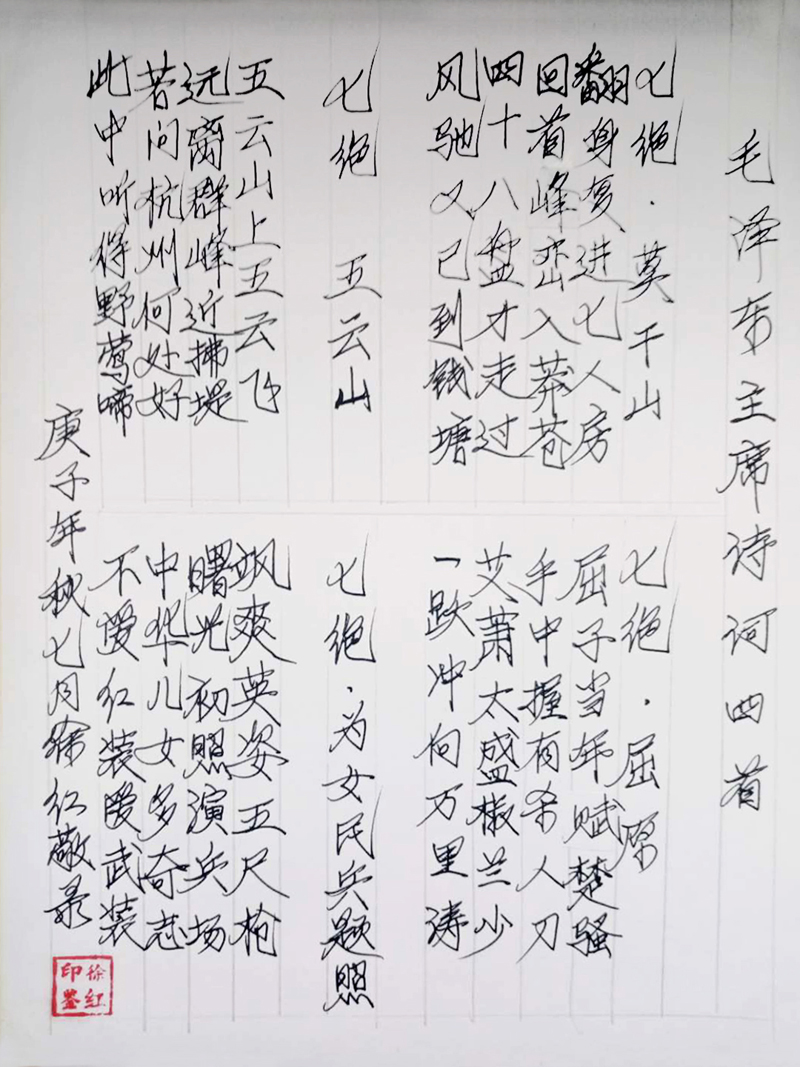 毛泽东主席诗词四首
七绝·莫干山
翻身复进七人房
回首峰峦入莽苍
四十八盘才走过
风驰又已到钱塘
七绝·屈原
屈子当年赋楚骚
手中握有杀人刀
艾萧太盛椒兰少
一跃冲向万里涛
七绝 五云山
五云山上五云飞
远离群峰近拂堤
若问杭州何处好
此中听得野莺啼
七绝·为女民兵题照
飒爽英姿五尺枪
曙光初照演兵场
中华儿女多奇志
不爱红装爱武装
庚子年秋七月徐红敬录
徐红
印鉴